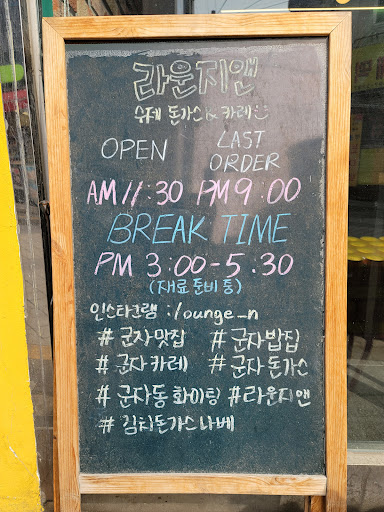 라운지앤
수제 돈가스&카레
OPEN LAST ORDER
AM 11:30 PM 9:00
BREAK TIME
PM 3:00-5:30
(재료준비중)
인스타그램 : lounge_n
#군자맛집 #군자밥집
#군자카레 #군자돈가스
#군자동화이팅 #라운지앤
#김치돈가스나베